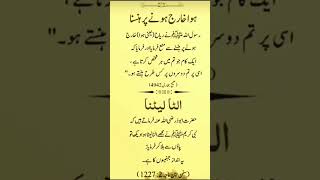 ہوا خارج ہونے پر ہنسنا
رسول اللہ ﷺ نے ریاح (یعنی ہوا) خارج
ہونے پر ہنسنے سے منع فرمایا اور فرمایا کہ
ایک کام جو تم میں ہر شخص کرتا ہے،
اسی پر تم دوسروں پر کس طرح ہنستے ہو۔"
4942)
الٹا لیٹنا
حضرت ابوذر رضی اللہ عنہ فرماتے ہیں کہ
نبی کریم ﷺ نے مجھے الٹا لیٹا ہوا دیکھ تو
پاؤں سے ہلا کر فرمایا:
یہ انداز جہنمیوں کا ہے۔
1227)